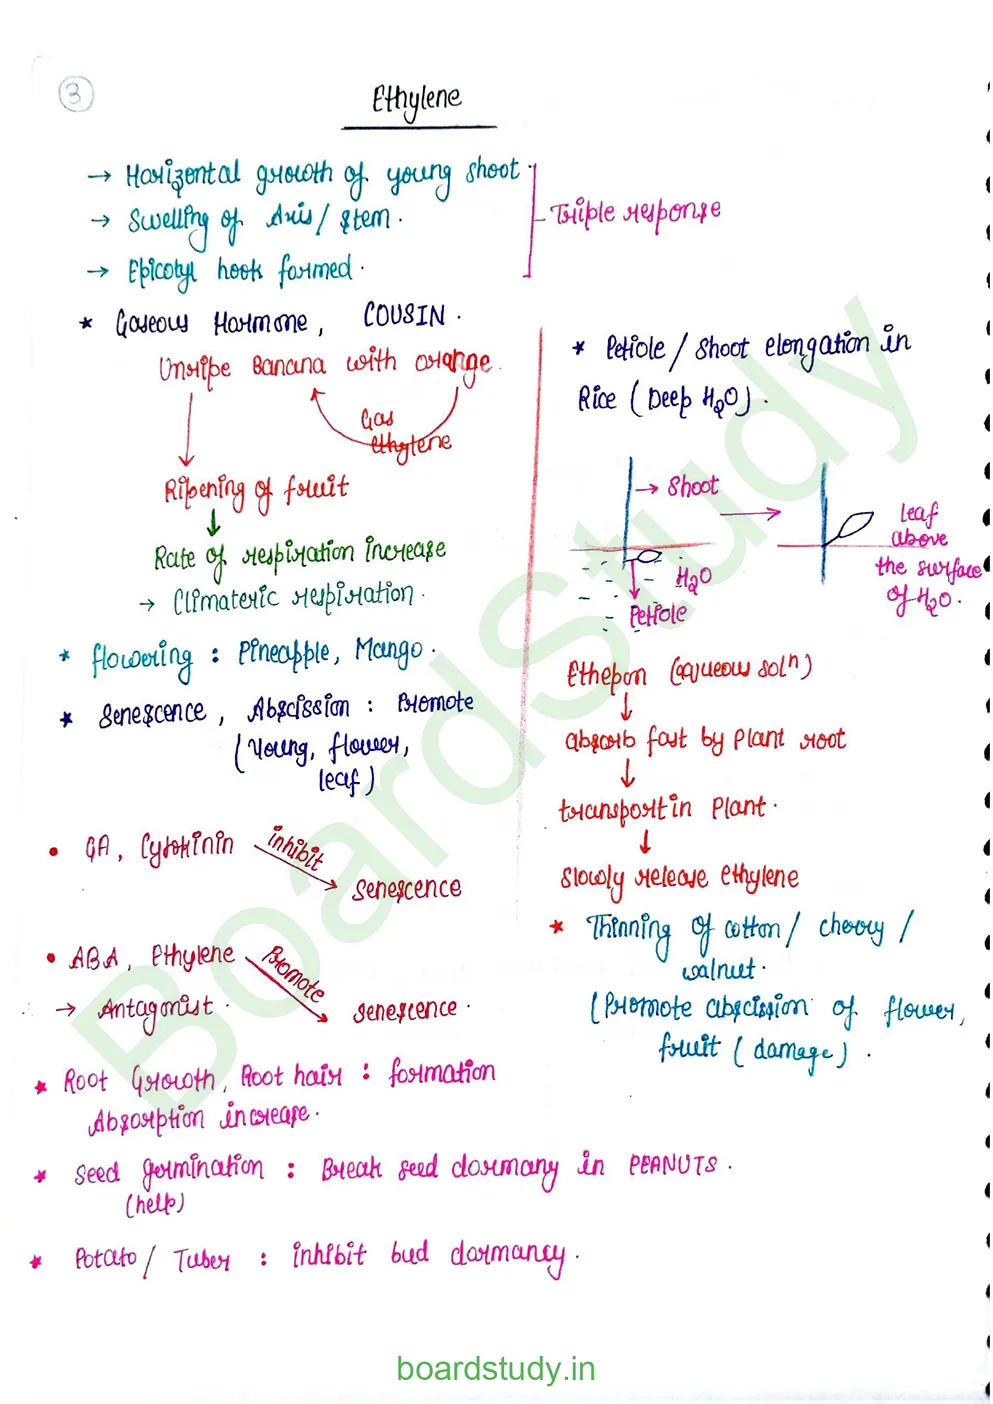 3
Ethylene
→ Horizontal growth of young shoot.
→ Swelling of Axis / stem.
→ Epicotyl hook formed.
Triple response
* Gaseous Hormone, COUSIN.
Unripe Banana with orange.
Gas
ethylene
Ripening of fruit
↓
Rate of respiration increase
→ Climateric respiration.
* flowering : Pineapple, Mango.
* Senescence, Abscission : Promote
(Young, flower,
leaf)
• GA, Cytokinin inhibit
senescence
• ABA, Ethylene Promote
→ Antagonist. senescence.
* Root Growth, Root hair : formation
Absorption increase.
* Seed germination : Break seed dormany in PEANUTS.
(help)
* Potato / Tuber : inhibit bud dormancy.
* Petiole / Shoot elongation in
Rice (Deep H2O).
→ Shoot
H2O
Petiole
leaf
above
the surface
of H2O.
Ethepon (aqueous solⁿ)
↓
absorb fast by plant root
↓
transport in Plant.
↓
Slowly release ethylene
* Thinning of cotton / cherry /
walnut.
(Promote abscission of flower,
fruit (damage).
BoardStudy
boardstudy.in